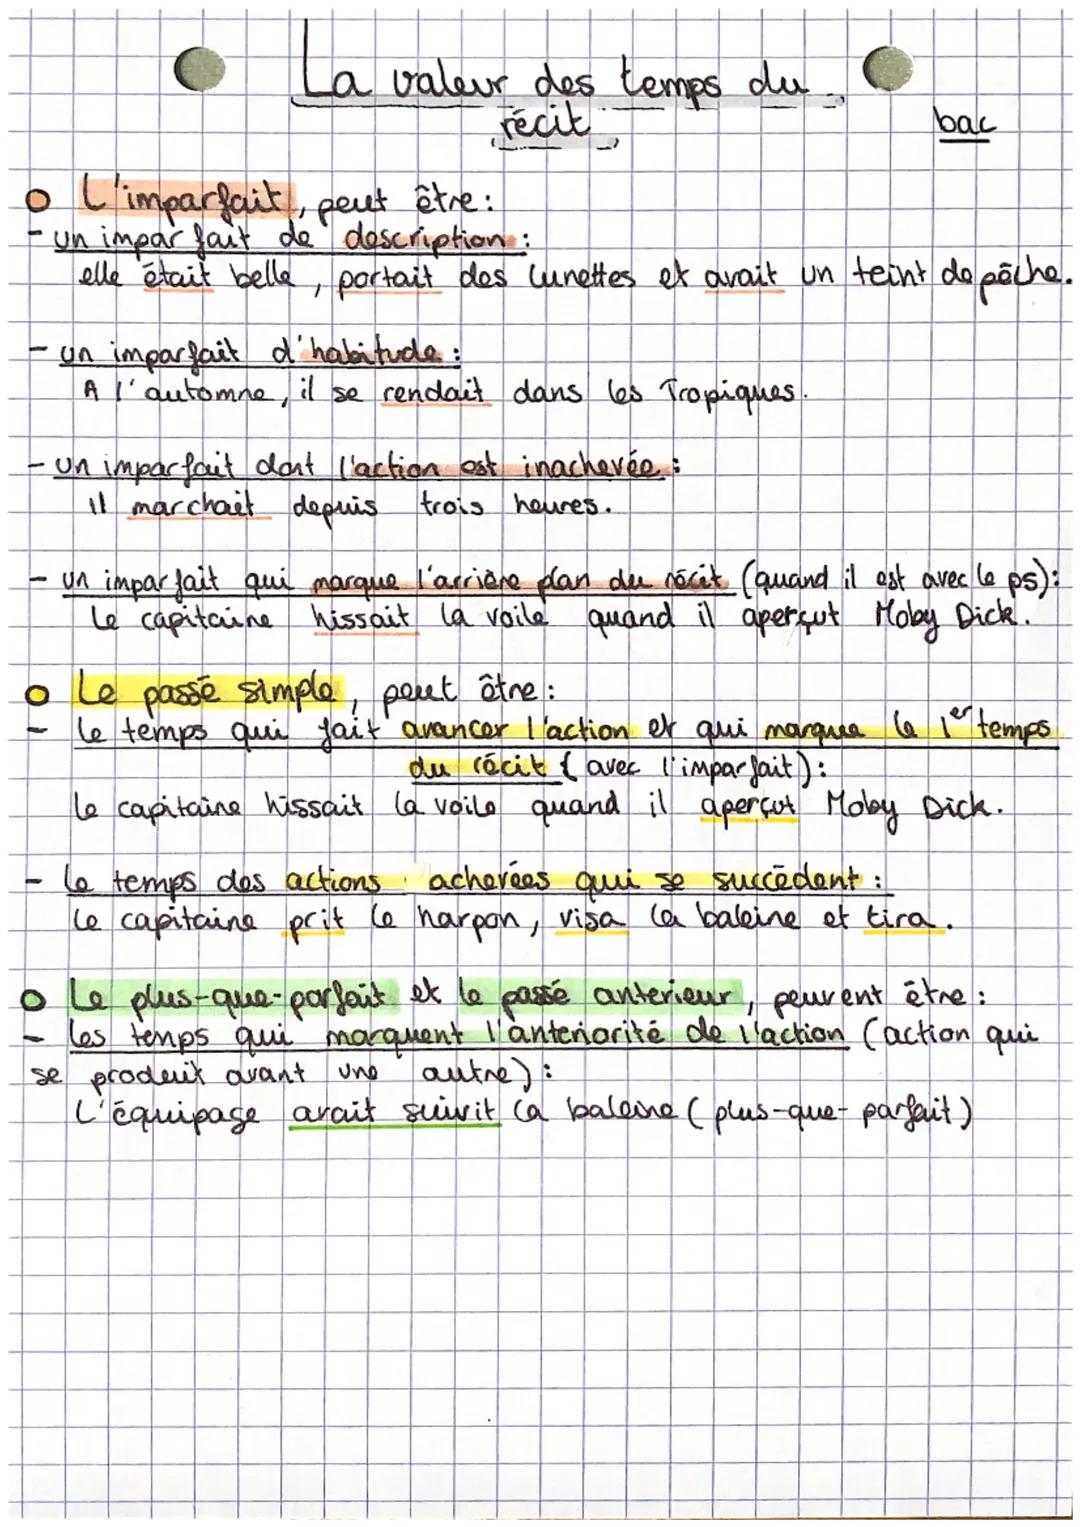 La valeur des temps du
récit
bac
L'imparfait, peut être :
- un imparfait de description :
elle était belle, portait des lunettes et avait un teint de pêche.
- un imparfait d'habitude :
A l'automne, il se rendait dans les Tropiques.
- un imparfait dont l'action est inachevée :
Il marchait depuis trois heures.
- un imparfait qui marque l'arrière plan du récit (quand il est avec le ps) :
Le capitaine hissait la voile quand il aperçut Moby Dick.
Le passé simple, peut être :
- le temps qui fait avancer l'action et qui marque le 1er temps
du récit (avec l'imparfait) :
Le capitaine hissait la voile quand il aperçut Moby Dick.
- le temps des actions achevées qui se succèdent :
Le capitaine prit le harpon, visa la baleine et tira.
Le plus-que-parfait et le passé antérieur, peuvent être :
- les temps qui marquent l'antériorité de l'action (action qui
se produit avant une autre) :
L'équipage avait suivit la baleine (plus-que-parfait)